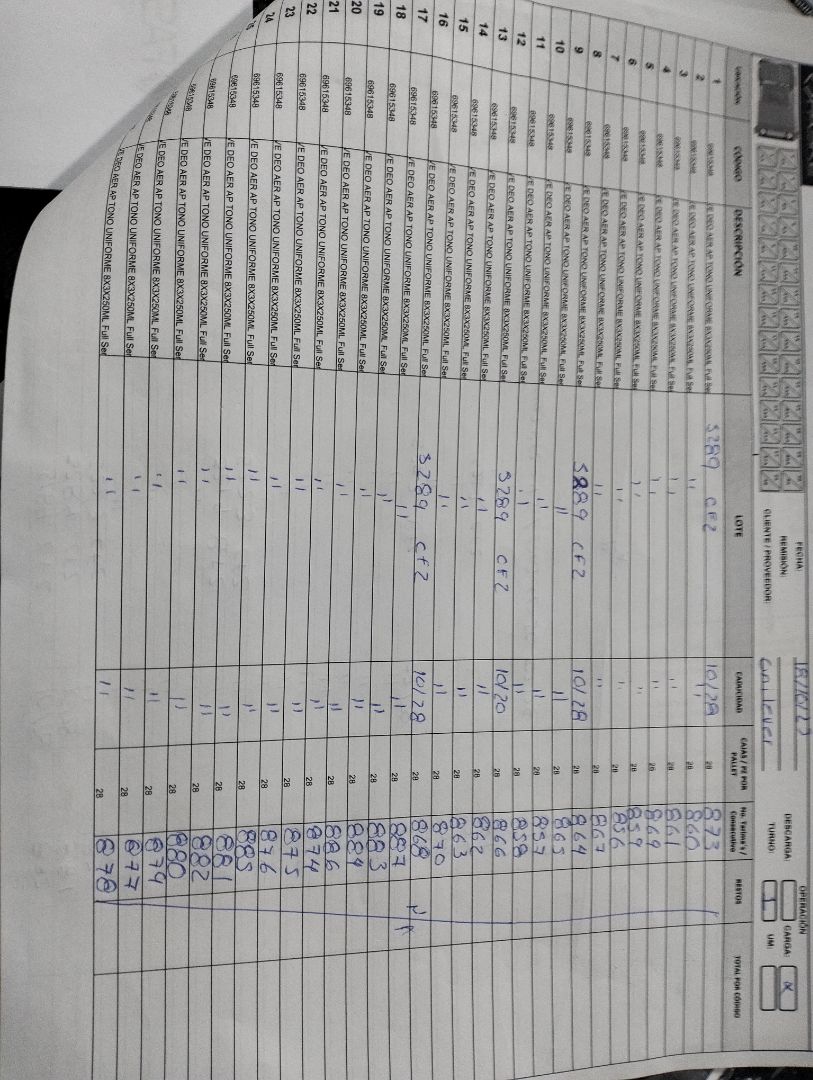 FECHA: 18/10/23 OPERACIÓN
REMISIÓN: DESCARGA: CARGA: x
CLIENTE / PROVEEDOR: Unilever TURNO: 1 UM:
UBICACIÓN CÓDIGO DESCRIPCIÓN LOTE CADUCIDAD CAJAS / PZ POR PALLET No. Tarima's / Consecutivo RESTOS TOTAL POR CÓDIGO
1 69615348 VE DEO AER AP TONO UNIFORME 8X3X250ML Full Ser 3289 CF2 10/28 28 873
2 69615348 VE DEO AER AP TONO UNIFORME 8X3X250ML Full Ser " " 28 860
3 69615348 VE DEO AER AP TONO UNIFORME 8X3X250ML Full Ser " " 28 861
4 69615348 VE DEO AER AP TONO UNIFORME 8X3X250ML Full Ser " " 28 869
5 69615348 VE DEO AER AP TONO UNIFORME 8X3X250ML Full Ser " " 28 859
6 69615348 VE DEO AER AP TONO UNIFORME 8X3X250ML Full Ser " " 28 856
7 69615348 VE DEO AER AP TONO UNIFORME 8X3X250ML Full Ser " " 28 867
8 69615348 VE DEO AER AP TONO UNIFORME 8X3X250ML Full Ser 3289 CF2 10/28 28 864
9 69615348 VE DEO AER AP TONO UNIFORME 8X3X250ML Full Ser " " 28 865
10 69615348 VE DEO AER AP TONO UNIFORME 8X3X250ML Full Ser " " 28 857
11 69615348 VE DEO AER AP TONO UNIFORME 8X3X250ML Full Ser " " 28 858
12 69615348 VE DEO AER AP TONO UNIFORME 8X3X250ML Full Ser 3289 CF2 10/20 28 866
13 69615348 VE DEO AER AP TONO UNIFORME 8X3X250ML Full Ser " " 28 862
14 69615348 VE DEO AER AP TONO UNIFORME 8X3X250ML Full Ser " " 28 863
15 69615348 VE DEO AER AP TONO UNIFORME 8X3X250ML Full Ser " " 28 870
16 69615348 VE DEO AER AP TONO UNIFORME 8X3X250ML Full Ser 3289 CF2 10/28 28 868
17 69615348 VE DEO AER AP TONO UNIFORME 8X3X250ML Full Ser " " 28 887
18 69615348 VE DEO AER AP TONO UNIFORME 8X3X250ML Full Ser " " 28 883
19 69615348 VE DEO AER AP TONO UNIFORME 8X3X250ML Full Ser " " 28 884
20 69615348 VE DEO AER AP TONO UNIFORME 8X3X250ML Full Ser " " 28 886
21 69615348 VE DEO AER AP TONO UNIFORME 8X3X250ML Full Ser " " 28 874
22 69615348 VE DEO AER AP TONO UNIFORME 8X3X250ML Full Ser " " 28 875
23 69615348 VE DEO AER AP TONO UNIFORME 8X3X250ML Full Ser " " 28 876
24 69615348 VE DEO AER AP TONO UNIFORME 8X3X250ML Full Ser " " 28 885
69615348 VE DEO AER AP TONO UNIFORME 8X3X250ML Full Ser " " 28 881
69615348 VE DEO AER AP TONO UNIFORME 8X3X250ML Full Ser " " 28 882
69615348 VE DEO AER AP TONO UNIFORME 8X3X250ML Full Ser " " 28 880
VE DEO AER AP TONO UNIFORME 8X3X250ML Full Ser " " 28 879
VE DEO AER AP TONO UNIFORME 8X3X250ML Full Ser " " 28 877
VE DEO AER AP TONO UNIFORME 8X3X250ML Full Ser " " 28 878